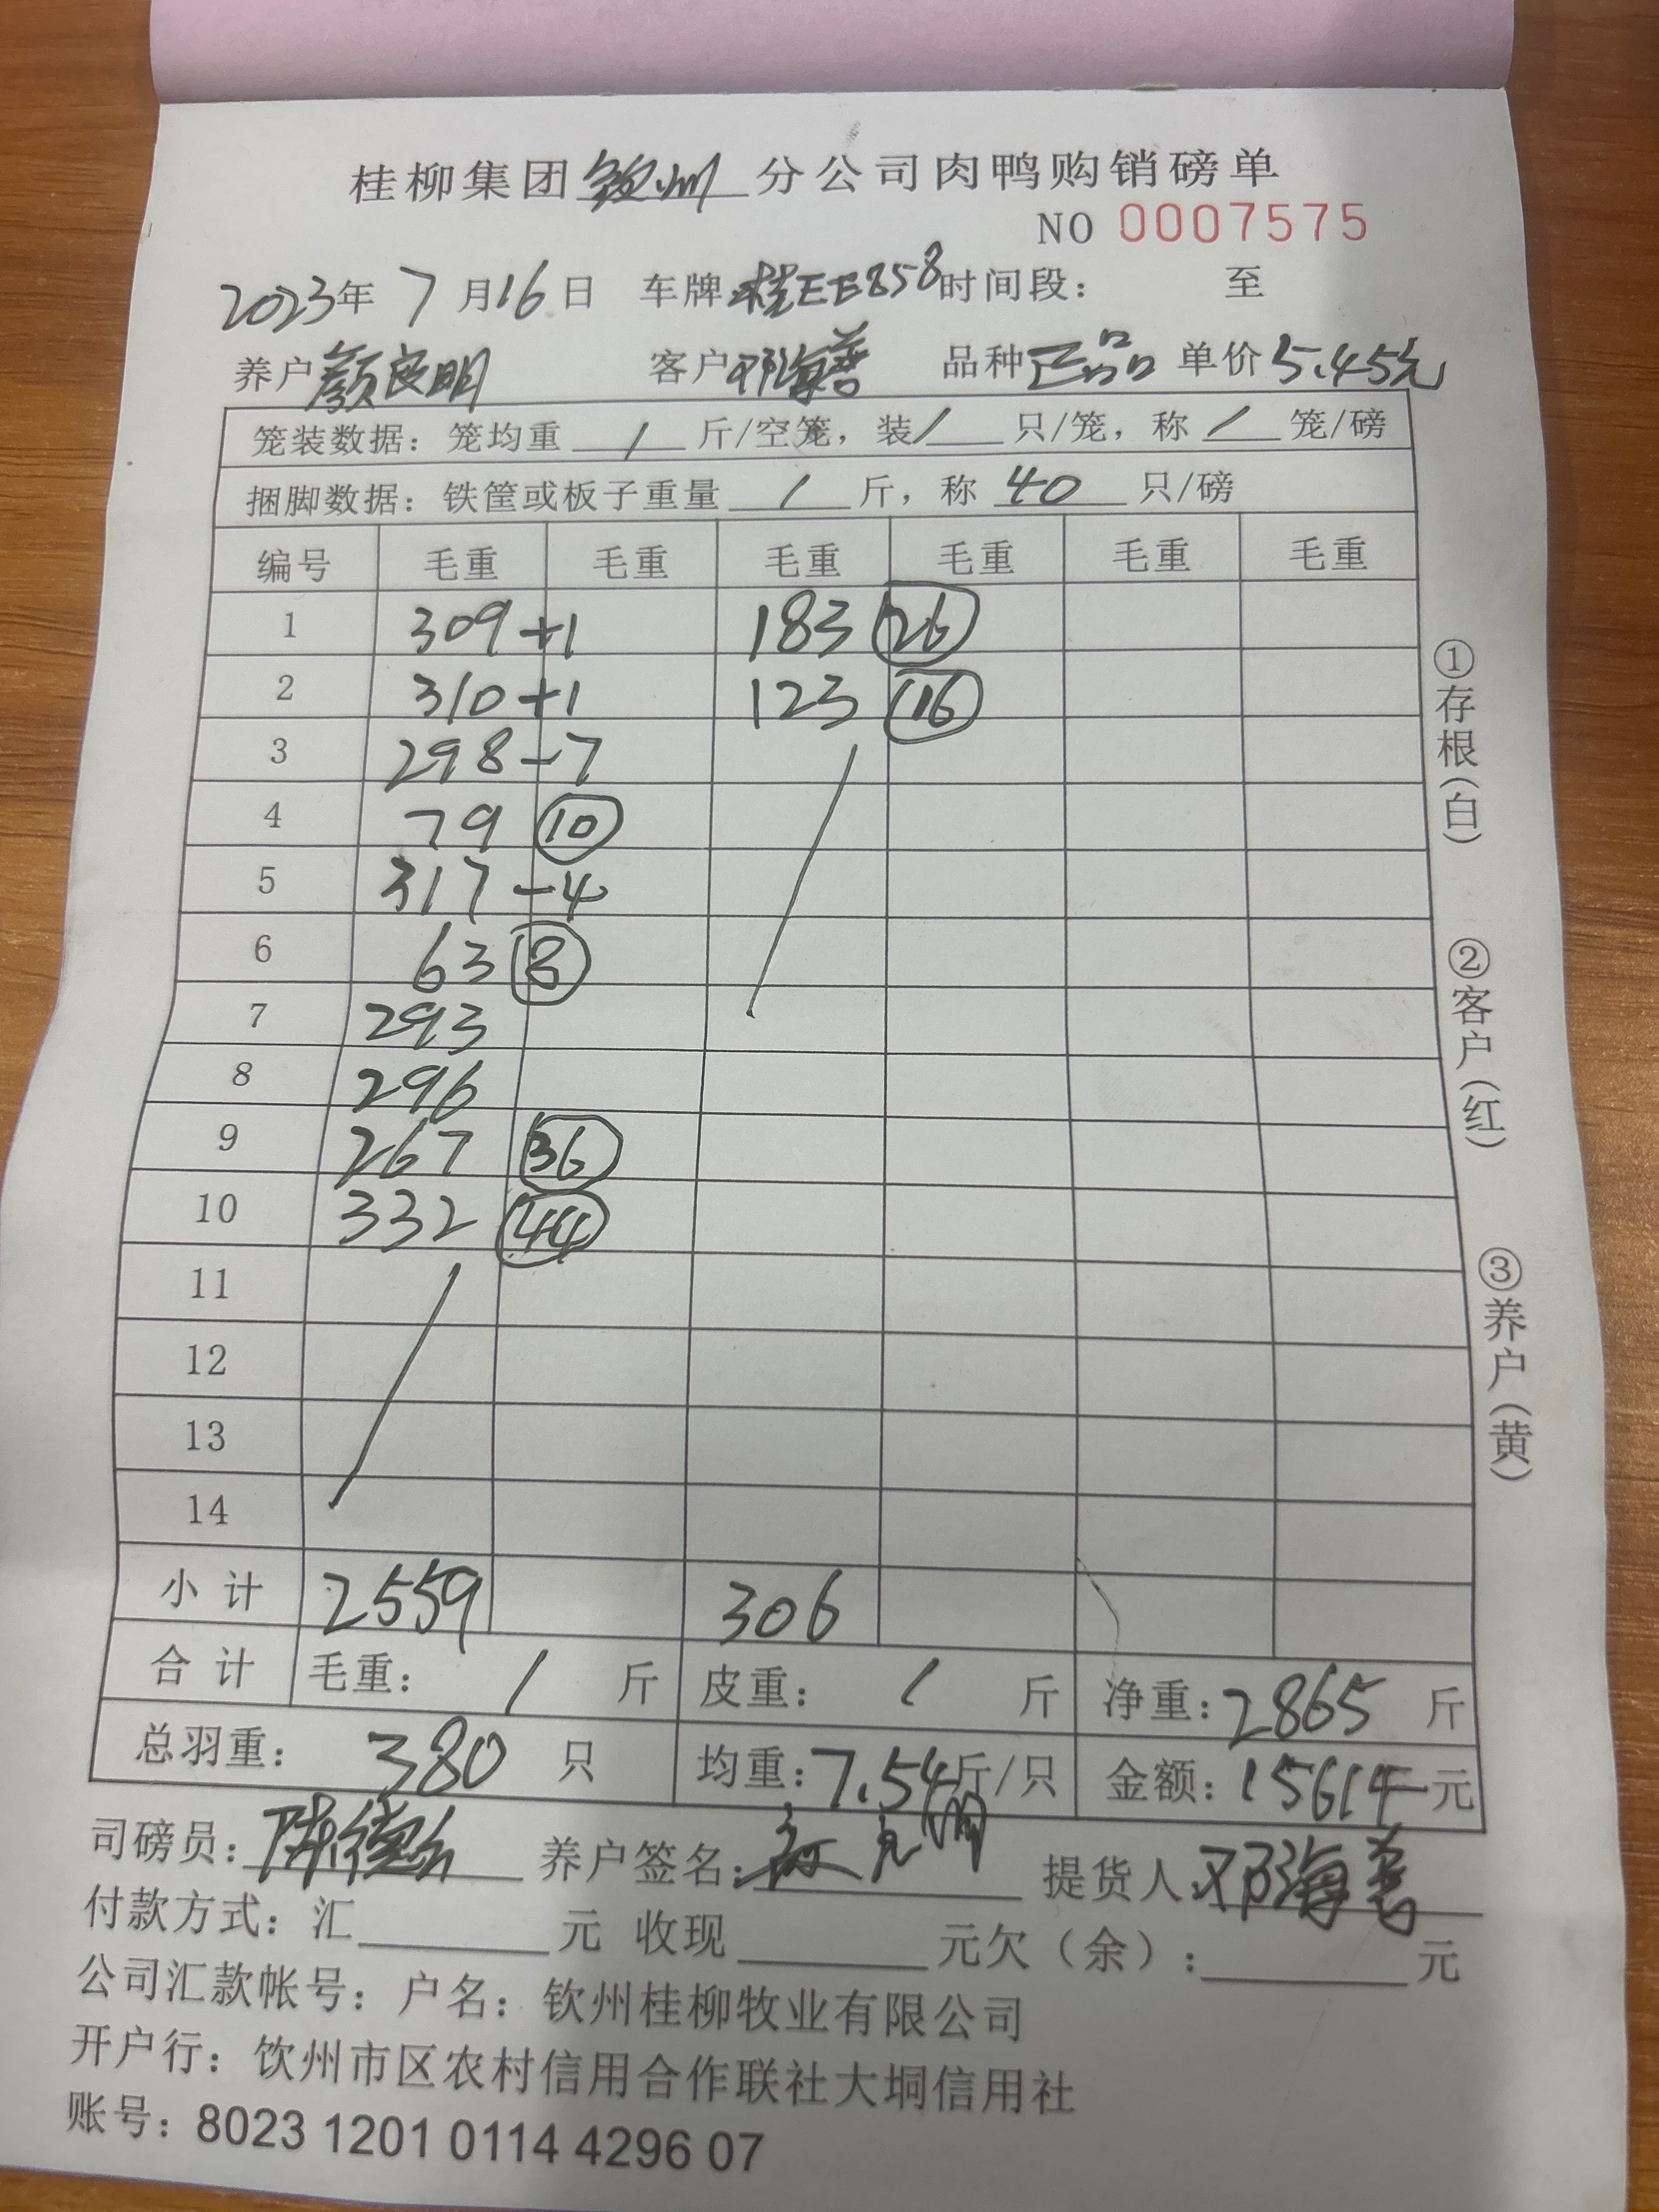 桂柳集团钦州分公司肉鸭购销磅单
NO 0007575
2023年 7月16日 车牌桂EE858时间段： 至
养户颜良明 客户邓海善 品种正品 单价5.45元
笼装数据：笼均重 / 斤/空笼，装/只/笼，称/笼/磅
捆脚数据：铁筐或板子重量 / 斤，称 40 只/磅
编号 毛重 毛重 毛重 毛重 毛重 毛重
1 309+1 183 26
2 310+1 123 16
3 298-7
4 79 10
5 317-4
6 63 8
7 293
8 296
9 267 36
10 332 44
11
12
13
14
小计 2559 306
合计 毛重： / 斤 皮重： / 斤 净重：2865 斤
总羽重： 380 只 均重：7.54斤/只 金额：15614元
司磅员： 养户签名： 提货人：邓海善
付款方式：汇 元 收现 元欠（余）： 元
公司汇款帐号：户名：钦州桂柳牧业有限公司
开户行：饮州市区农村信用合作联社大垌信用社
账号：8023 1201 0114 4296 07
①存根（白） ②客户（红） ③养户（黄）